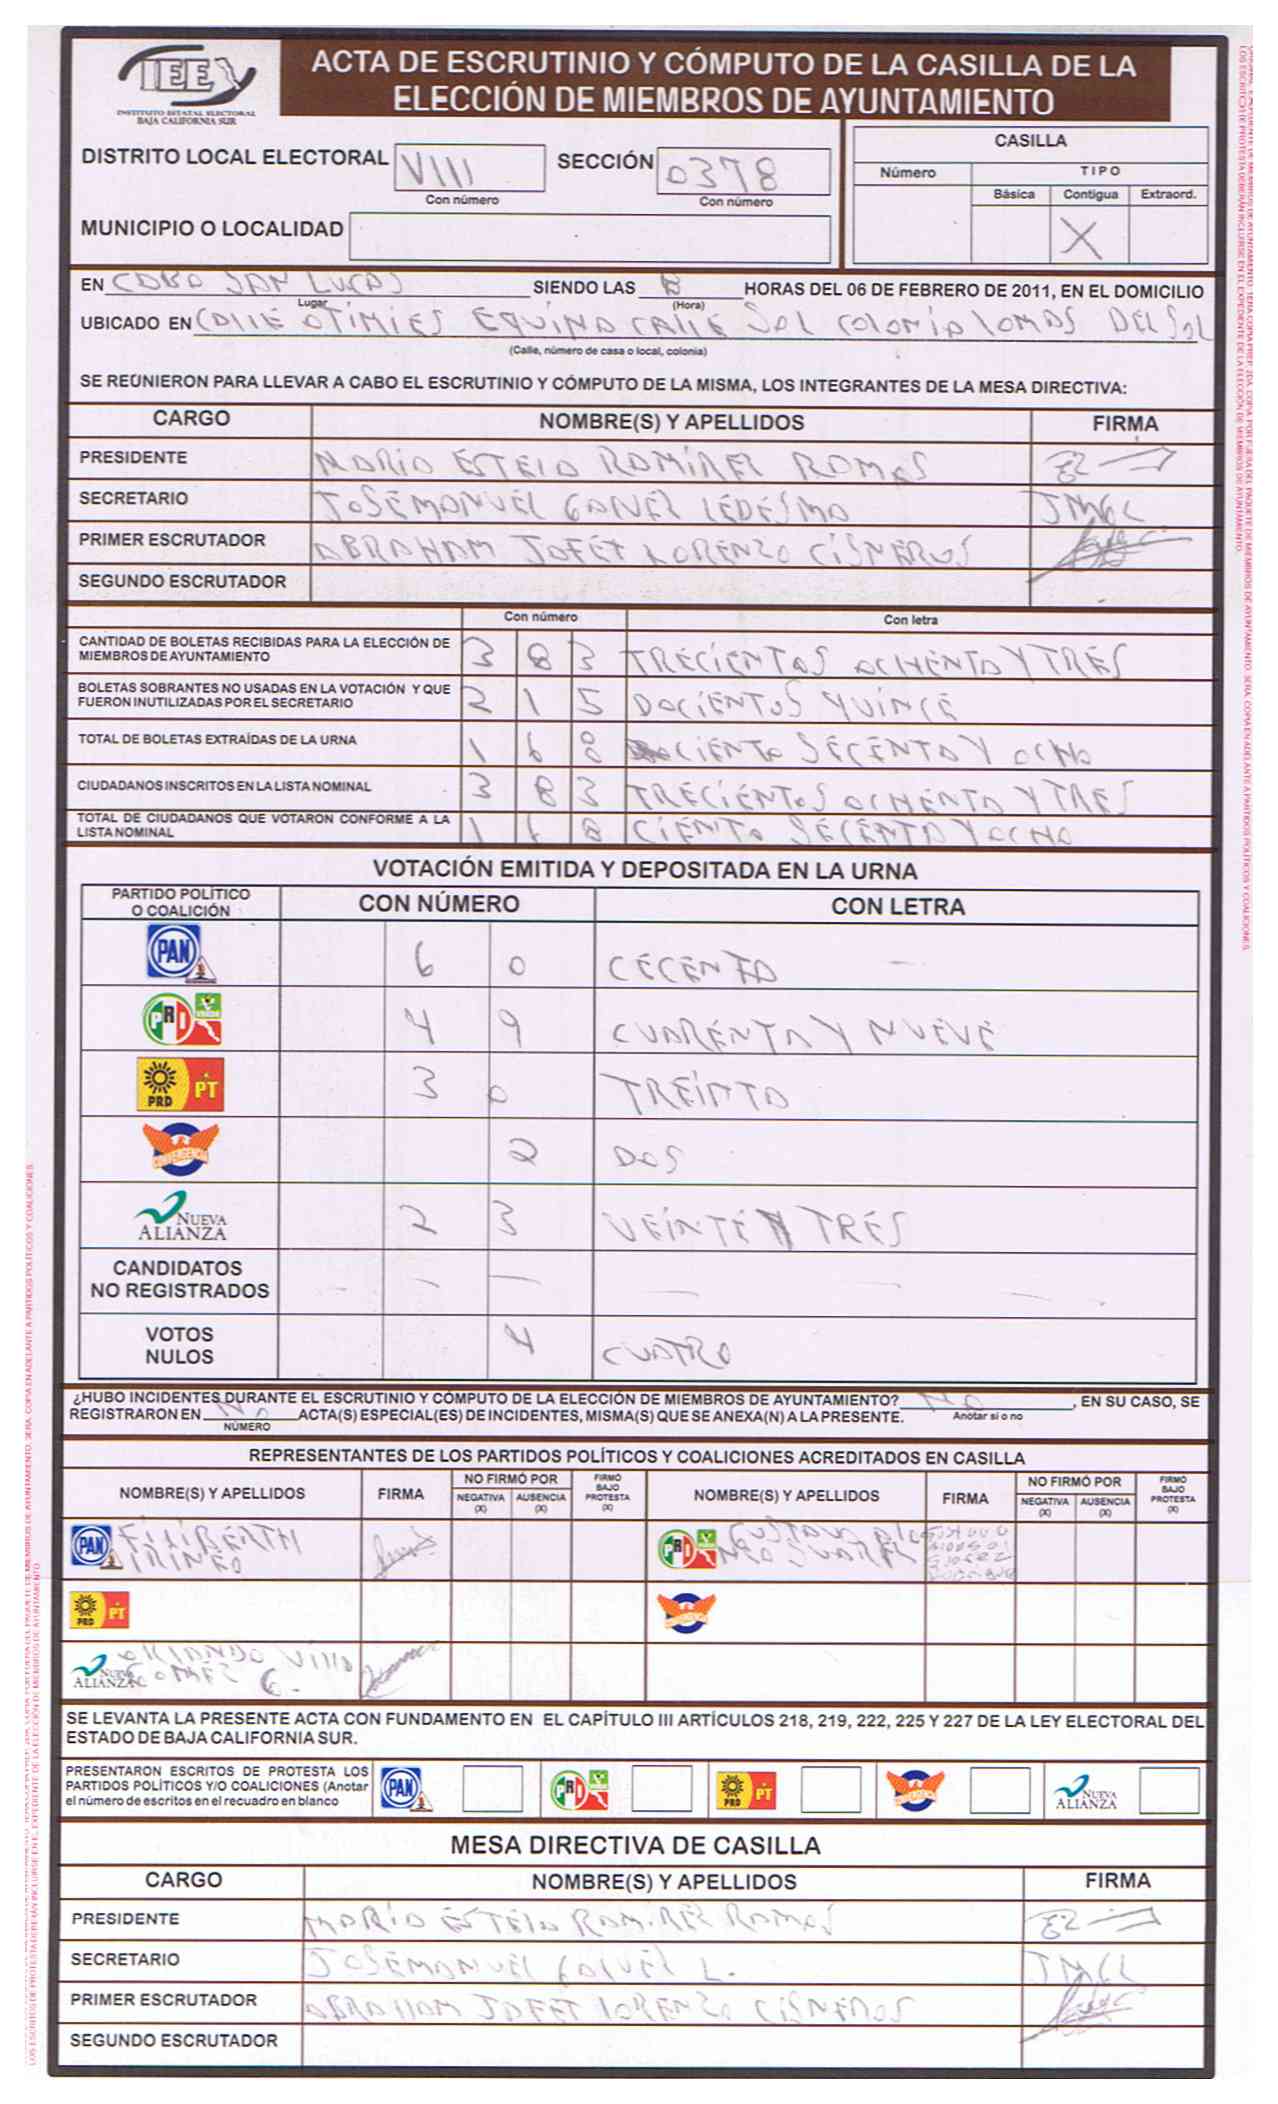 IEE
INSTITUTO ESTATAL ELECTORAL
BAJA CALIFORNIA SUR
ACTA DE ESCRUTINIO Y CÓMPUTO DE LA CASILLA DE LA
ELECCIÓN DE MIEMBROS DE AYUNTAMIENTO
DISTRITO LOCAL ELECTORAL VIII SECCIÓN 0378
Con número Con número
MUNICIPIO O LOCALIDAD
CASILLA
Número TIPO
Básica Contigua Extraord.
X
EN CABO SAN LUCAS SIENDO LAS 8 HORAS DEL 06 DE FEBRERO DE 2011, EN EL DOMICILIO
Lugar (Hora)
UBICADO EN CALLE OTIMIES EQUINA CALLE SOL COLONIA LOMAS DEL SOL
(Calle, número de casa o local, colonia)
SE REÚNIERON PARA LLEVAR A CABO EL ESCRUTINIO Y CÓMPUTO DE LA MISMA, LOS INTEGRANTES DE LA MESA DIRECTIVA:
CARGO NOMBRE(S) Y APELLIDOS FIRMA
PRESIDENTE MARIA ESTELA RAMIREZ RAMOS
SECRETARIO JOSEMANUEL GALVEZ LEDESMA JMGL
PRIMER ESCRUTADOR ABRAHAM JAFET LORENZO CISNEROS
SEGUNDO ESCRUTADOR
Con número Con letra
CANTIDAD DE BOLETAS RECIBIDAS PARA LA ELECCIÓN DE
MIEMBROS DE AYUNTAMIENTO 3 8 3 TRECIENTOS OCHENTA Y TRES
BOLETAS SOBRANTES NO USADAS EN LA VOTACIÓN Y QUE
FUERON INUTILIZADAS POR EL SECRETARIO 2 1 5 DOCIENTOS YUINCE
TOTAL DE BOLETAS EXTRAÍDAS DE LA URNA 1 6 8 CIENTO SECENTA Y OCHO
CIUDADANOS INSCRITOS EN LA LISTA NOMINAL 3 8 3 TRECIENTOS OCHENTA Y TRES
TOTAL DE CIUDADANOS QUE VOTARON CONFORME A LA
LISTA NOMINAL 1 6 8 CIENTO SECENTA Y OCHO
VOTACIÓN EMITIDA Y DEPOSITADA EN LA URNA
PARTIDO POLÍTICO
O COALICIÓN CON NÚMERO CON LETRA
PAN 6 0 CECENTA
PRI VERDE 4 9 CUARENTA Y NUEVE
PRD PT 3 0 TREINTA
CONVERGENCIA 2 DOS
NUEVA ALIANZA 2 3 VEINTE Y TRES
CANDIDATOS
NO REGISTRADOS - - - - - -
VOTOS
NULOS 4 CUATRO
¿HUBO INCIDENTES DURANTE EL ESCRUTINIO Y CÓMPUTO DE LA ELECCIÓN DE MIEMBROS DE AYUNTAMIENTO? NO, EN SU CASO, SE
REGISTRARON EN NO ACTA(S) ESPECIAL(ES) DE INCIDENTES, MISMA(S) QUE SE ANEXA(N) A LA PRESENTE. Anotar si o no
NÚMERO
REPRESENTANTES DE LOS PARTIDOS POLÍTICOS Y COALICIONES ACREDITADOS EN CASILLA
NOMBRE(S) Y APELLIDOS FIRMA NO FIRMÓ POR NEGATIVA (X) AUSENCIA (X) FIRMÓ BAJO PROTESTA (X) NOMBRE(S) Y APELLIDOS FIRMA NO FIRMÓ POR NEGATIVA (X) AUSENCIA (X) FIRMÓ BAJO PROTESTA (X)
PAN FILIBERTH
IRINEO
PRI
PRD PT CONVERGENCIA
NUEVA ALIANZA ORLANDO VILLA
GOMEZ G.
SE LEVANTA LA PRESENTE ACTA CON FUNDAMENTO EN EL CAPÍTULO III ARTÍCULOS 218, 219, 222, 225 Y 227 DE LA LEY ELECTORAL DEL
ESTADO DE BAJA CALIFORNIA SUR.
PRESENTARON ESCRITOS DE PROTESTA LOS
PARTIDOS POLÍTICOS Y/O COALICIONES (Anotar
el número de escritos en el recuadro en blanco
PAN PRI PRD PT CONVERGENCIA NUEVA ALIANZA
MESA DIRECTIVA DE CASILLA
CARGO NOMBRE(S) Y APELLIDOS FIRMA
PRESIDENTE MARIA ESTELA RAMIREZ RAMOS
SECRETARIO JOSEMANUEL GALVEZ L. JMGL
PRIMER ESCRUTADOR ABRAHAM JAFET LORENZO CISNEROS
SEGUNDO ESCRUTADOR